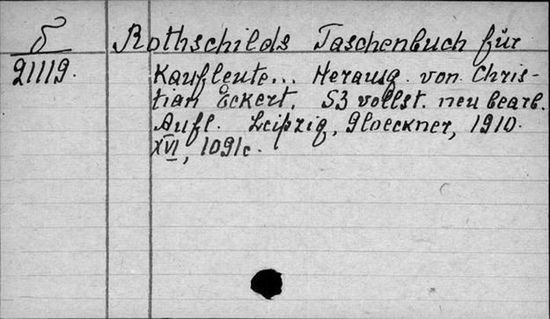 δ Rothschilds Taschenbuch für
21119. Kaufleute... Herausg. von Chris-
tian Eckert. 53 vollst. neu bearb.
Aufl. Leipzig, Gloeckner, 1910.
XVI, 1091c.